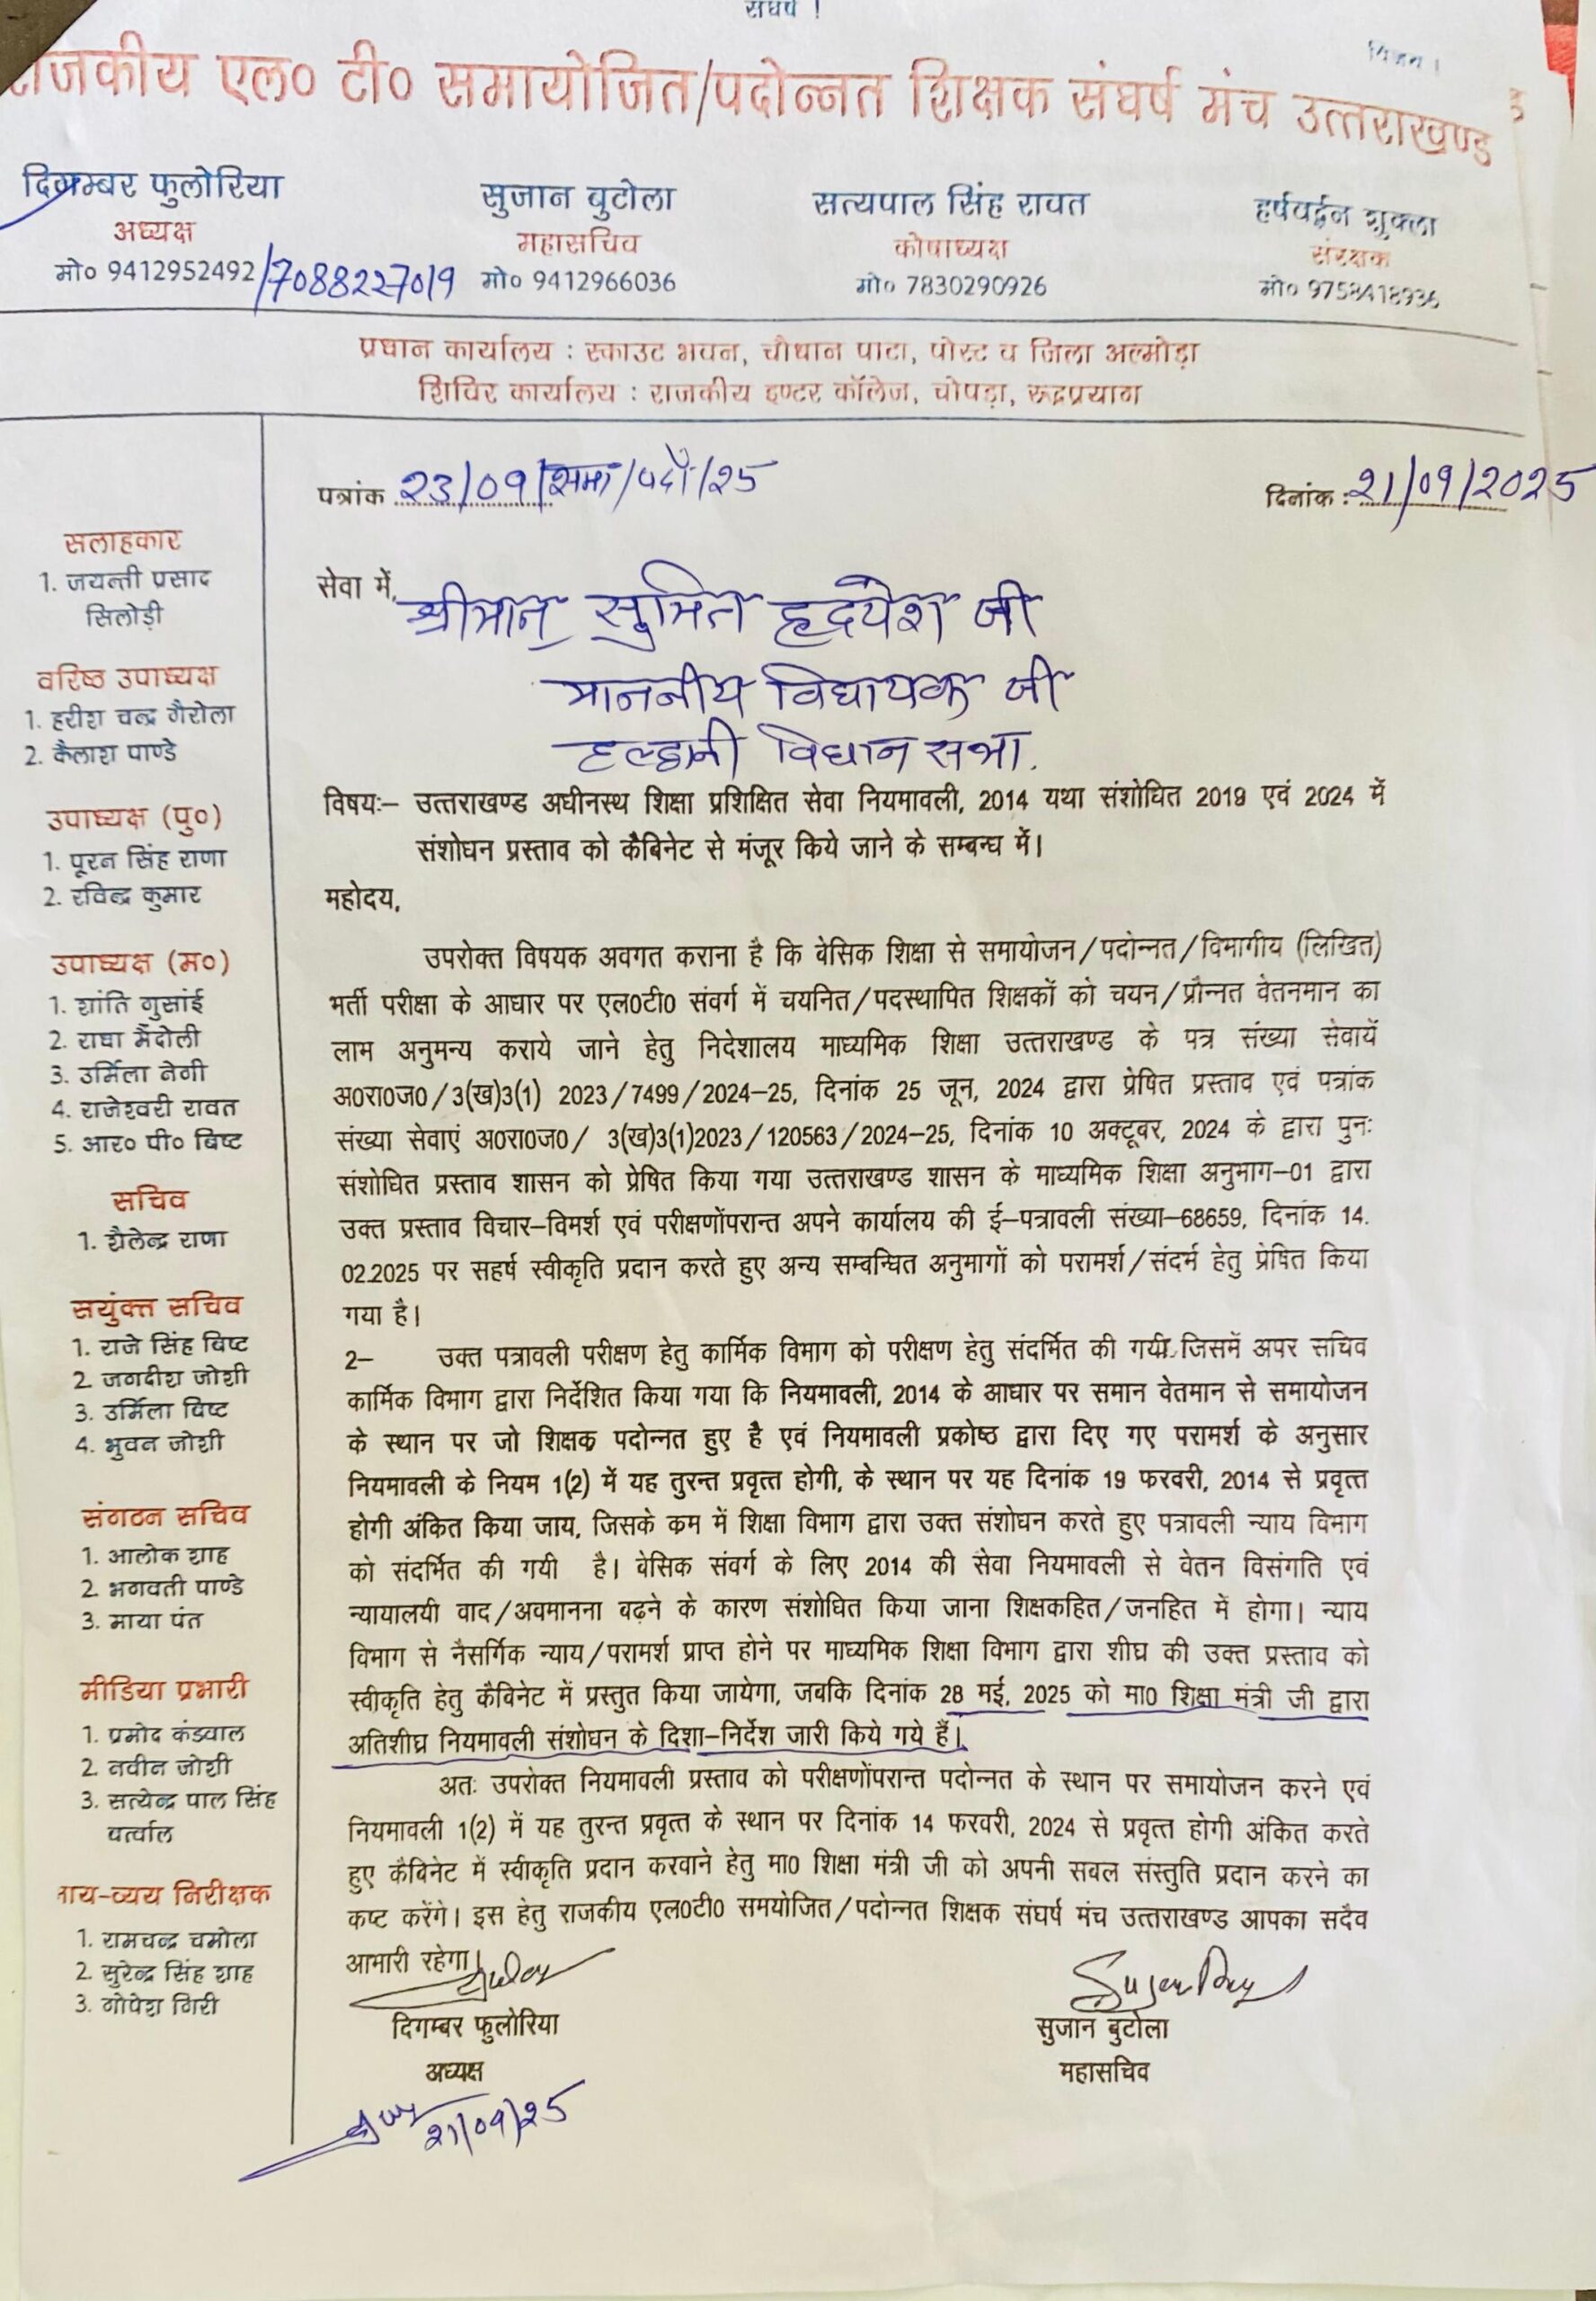 संघर्ष !
विजय !
राजकीय एल० टी० समायोजित/पदोन्नत शिक्षक संघर्ष मंच उत्तराखण्ड
दिगम्बर फुलोरिया
अध्यक्ष
मो० 9412952492/7088227019
सुजान बुटोला
महासचिव
मो० 9412966036
सत्यपाल सिंह रावत
कोषाध्यक्ष
मो० 7830290926
हर्षवर्द्धन शुक्ला
संरक्षक
मो० 9758418936
प्रधान कार्यालय : स्काउट भवन, चौधान पाटा, पोस्ट व जिला अल्मोड़ा
शिविर कार्यालय : राजकीय इण्टर कॉलेज, चोपड़ा, रूद्रप्रयाग
पत्रांक 23/09/समा/पदो/25
दिनांक : 21/09/2025
सलाहकार
1. जयन्ती प्रसाद
सिलोड़ी
वरिष्ठ उपाध्यक्ष
1. हरीश चन्द्र गैरोला
2. कैलाश पाण्डे
उपाध्यक्ष (पु०)
1. पूरन सिंह राणा
2. रविन्द्र कुमार
उपाध्यक्ष (म०)
1. शांति गुसांई
2. राधा मैंदोली
3. उर्मिला नेगी
4. राजेश्वरी रावत
5. आर० पी० बिष्ट
सचिव
1. शैलेन्द्र राणा
सयुंक्त सचिव
1. राजे सिंह बिष्ट
2. जगदीश जोशी
3. उर्मिला बिष्ट
4. भुवन जोशी
संगठन सचिव
1. आलोक शाह
2. भगवती पाण्डे
3. माया पंत
मीडिया प्रभारी
1. प्रमोद कंडवाल
2. नवीन जोशी
3. सत्येन्द्र पाल सिंह
बर्त्वाल
आय-व्यय निरीक्षक
1. रामचन्द्र चमोला
2. सुरेन्द्र सिंह शाह
3. गोपेश गिरी
सेवा में,
श्रीमान् सुमित ह्रदयेश जी
माननीय विधायक जी
हल्द्वानी विधान सभा.
विषयः– उत्तराखण्ड अधीनस्थ शिक्षा प्रशिक्षित सेवा नियमावली, 2014 यथा संशोधित 2019 एवं 2024 में
संशोधन प्रस्ताव को कैबिनेट से मंजूर किये जाने के सम्बन्ध में।
महोदय,
उपरोक्त विषयक अवगत कराना है कि बेसिक शिक्षा से समायोजन/पदोन्नत/विभागीय (लिखित)
भर्ती परीक्षा के आधार पर एल0टी0 संवर्ग में चयनित/पदस्थापित शिक्षकों को चयन/प्रौन्नत वेतनमान का
लाभ अनुमन्य कराये जाने हेतु निदेशालय माध्यमिक शिक्षा उत्तराखण्ड के पत्र संख्या सेवायें
अ0रा0ज0/3(ख)3(1) 2023/7499/2024–25, दिनांक 25 जून, 2024 द्वारा प्रेषित प्रस्ताव एवं पत्रांक
संख्या सेवाएं अ0रा0ज0/ 3(ख)3(1)2023/120563/2024–25, दिनांक 10 अक्टूबर, 2024 के द्वारा पुनः
संशोधित प्रस्ताव शासन को प्रेषित किया गया उत्तराखण्ड शासन के माध्यमिक शिक्षा अनुभाग–01 द्वारा
उक्त प्रस्ताव विचार–विमर्श एवं परीक्षणोंपरान्त अपने कार्यालय की ई–पत्रावली संख्या–68659, दिनांक 14.
02.2025 पर सहर्ष स्वीकृति प्रदान करते हुए अन्य सम्बन्धित अनुभागों को परामर्श/संदर्भ हेतु प्रेषित किया
गया है।
2– उक्त पत्रावली परीक्षण हेतु कार्मिक विभाग को परीक्षण हेतु संदर्भित की गयी जिसमें अपर सचिव
कार्मिक विभाग द्वारा निर्देशित किया गया कि नियमावली, 2014 के आधार पर समान वेतमान से समायोजन
के स्थान पर जो शिक्षक पदोन्नत हुए है एवं नियमावली प्रकोष्ठ द्वारा दिए गए परामर्श के अनुसार
नियमावली के नियम 1(2) में यह तुरन्त प्रवृत्त होगी, के स्थान पर यह दिनांक 19 फरवरी, 2014 से प्रवृत्त
होगी अंकित किया जाय, जिसके कम में शिक्षा विभाग द्वारा उक्त संशोधन करते हुए पत्रावली न्याय विभाग
को संदर्भित की गयी है। बेसिक संवर्ग के लिए 2014 की सेवा नियमावली से वेतन विसंगति एवं
न्यायालयी वाद/अवमानना बढ़ने के कारण संशोधित किया जाना शिक्षकहित/जनहित में होगा। न्याय
विभाग से नैसर्गिक न्याय/परामर्श प्राप्त होने पर माध्यमिक शिक्षा विभाग द्वारा शीघ्र की उक्त प्रस्ताव को
स्वीकृति हेतु कैबिनेट में प्रस्तुत किया जायेगा, जबकि दिनांक 28 मई, 2025 को मा0 शिक्षा मंत्री जी द्वारा
अतिशीघ्र नियमावली संशोधन के दिशा–निर्देश जारी किये गये हैं।
अतः उपरोक्त नियमावली प्रस्ताव को परीक्षणोंपरान्त पदोन्नत के स्थान पर समायोजन करने एवं
नियमावली 1(2) में यह तुरन्त प्रवृत्त के स्थान पर दिनांक 14 फरवरी, 2024 से प्रवृत्त होगी अंकित करते
हुए कैबिनेट में स्वीकृति प्रदान करवाने हेतु मा0 शिक्षा मंत्री जी को अपनी सबल संस्तुति प्रदान करने का
कष्ट करेंगे। इस हेतु राजकीय एल0टी0 समयोजित/पदोन्नत शिक्षक संघर्ष मंच उत्तराखण्ड आपका सदैव
आभारी रहेगा।
दिगम्बर फुलोरिया
अध्यक्ष
21/09/25
सुजान बुटोला
महासचिव